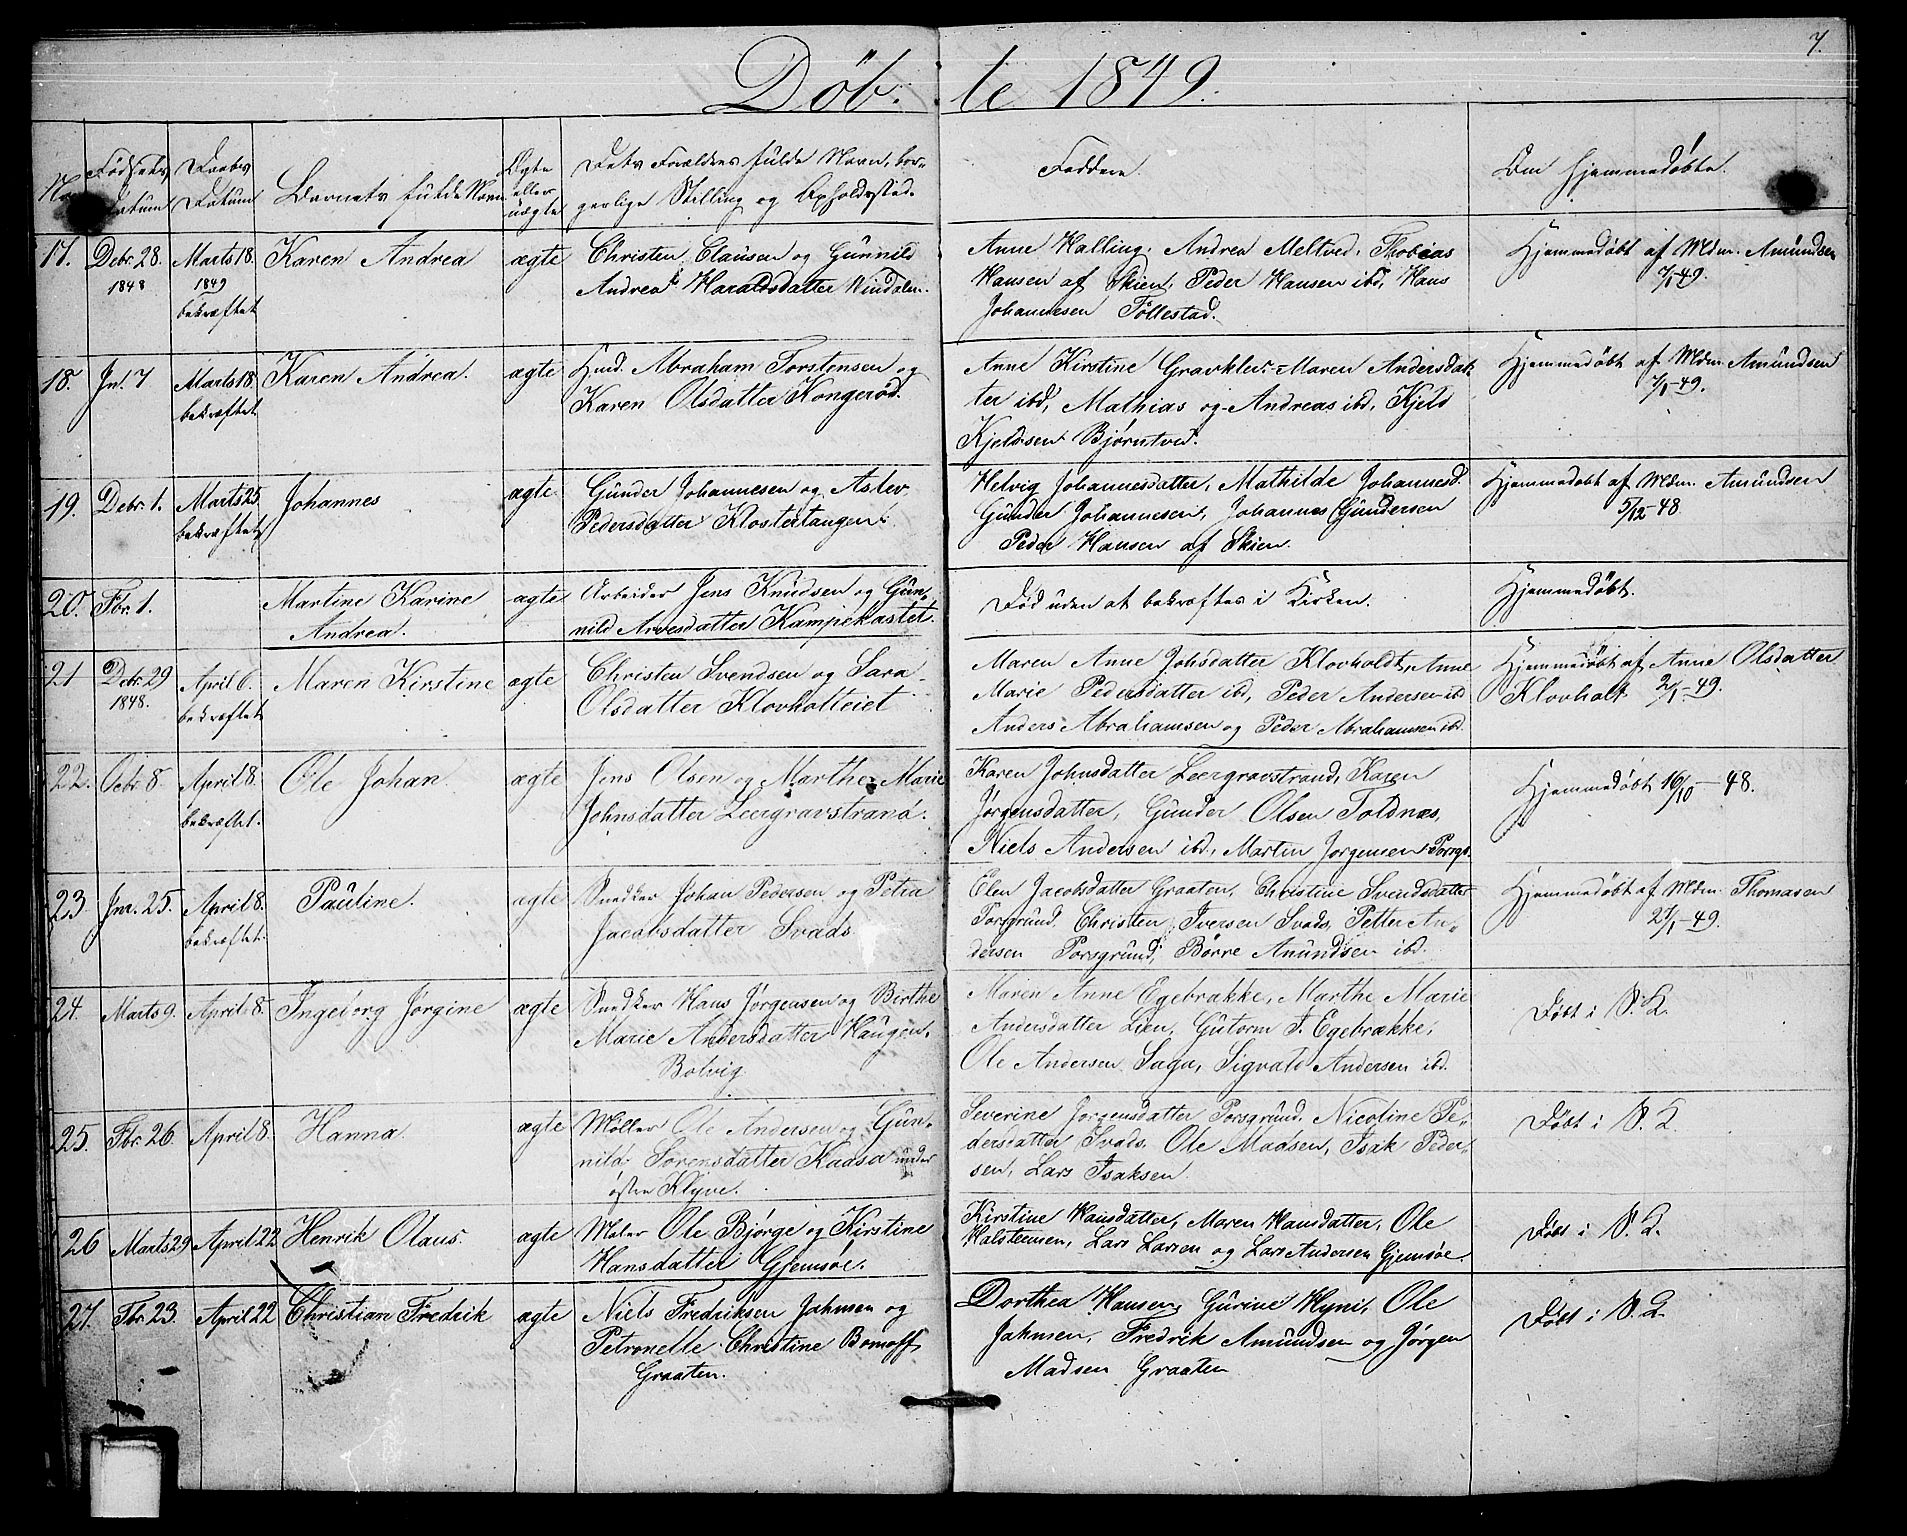 7.
Døb- te 1849.
No
Fødsels Datum
Daabs Datum
Barnets fulde Navn
Ægte eller uægte
Dets Forældres fulde Navn, bor-
gerlige Stilling og Opholdssted.
Faddere.
Om hjemmedøbte.
17. Debr. 28. 1848 Marts 18. 1849 bekræftet Karen Andrea ægte
Christen Clausen og Gunnild
Andrea Haraldsdatter Windalen.
Anne Halling, Andrea Meltved, Thobias
Hansen af Skien, Peder Hansen ibd, Hans
Johannesen Föllestad.
Hjemmedøbt af Mdm. Amundsen
7/1-49.
18. Jn. 7 Marts 18. bekræftet Karen Andrea. ægte
Husd. Abraham Torstensen og
Karen Olsdatter Kongerød.
Anne Kirstine Gravklev, Maren Andersdat-
ter ibd, Mathias og Andreas ibd, Kjeld
Kjeldsen Bjørntved.
Hjemmedøbt af Mdm. Amundsen
7/1-49.
19. Debr. 1. Marts 25 bekræftet Johannes ægte
Gunder Johannesen og Aslev
Pedersdatter Klostertangen.
Helvig Johannesdatter, Mathilde Johannesd.
Gunder Johannesen, Johannes Gundersen
Peder Hansen af Skien.
Hjemmedøbt af Mdm. Amundsen
5/12-48.
20. Fbr. 1. Martine Karine
Andrea. ægte
Arbeider Jens Knudsen og Gun-
nild Arvesdatter Kampekastet.
Død uden at bekræftes i Kirken.
Hjemmedøbt.
21 Debr. 29 1848. April 6. bekræftet Maren Kirstine ægte
Christen Svendsen og Sara
Olsdatter Klovholteiet
Maren Anne Johsdatter Klovholdt, Anne
Marie Pedersdatter ibd, Peder Andersen ibd
Anders Abrahamsen og Peder Abrahamsen ibd.
Hjemmedøbt af Anne Olsdatter
Klovholt 2/1-49.
22. Octbr. 8. April 8. bekræftet. Ole Johan ægte
Jens Olsen og Marthe Marie
Johnsdatter Leergravstrand.
Karen Johnsdatter Leergravstrand, Karen
Jørgensdatter, Gunder Olsen Toldnæs,
Niels Andersen ibd, Martin Jørgensen Porsgr.
Hjemmedøbt 16/10-48.
23. Jnr. 25. April 8. bekræftet. Pauline. ægte
Snedker Johan Pedersen og Petra
Jacobsdatter Svads
Elen Jacobsdatter Graaten, Christine Svendsdatter
Porsgrund, Christen Iversen Svads, Petter An-
dersen Porsgrund, Börre Amundsen ibd.
Hjemmedøbt af Mdm. Thomasen
27/1-49.
24. Marts 9. April 8. Ingeborg Jörgine ægte
Snedker Hans Jørgensen og Birthe
Marie Andersdatter Haugen,
Bolvig.
Maren Anne Egebrække, Marthe Marie
Andersdatter Lien, Gutorm J. Egebrække,
Ole Andersen Saga, Sigvald Andersen ibd.
Døbt i S. K.
25. Fbr. 26. April 8. Hanna. ægte
Møller Ole Andersen og Gun-
nild Sørensdatter Kaasa under
østre Klyve.
Severine Jørgensdatter Porsgrund, Nicoline Pe-
dersdatter Svads, Ole Madsen, Isak Peder-
sen, Lars Isaksen.
Døbt i S. K.
26 Marts 29 April 22 Henrik Olaus. ægte
Maler Ole Bjørge og Kirstine
Hansdatter Gjemsøe.
Kirstine Hansdatter, Maren Hansdatter, Ole
Halstensen, Lars Larsen og Lars Andersen Gjemsøe.
Døbt i S. K.
27. Fbr. 23. April 22 Christian Fredrik ægte
Niels Fredriksen Jahnsen og
Petronelle Christine Bomoff
Graaten.
Dorthea Hansen, Gurine Hyni, Ole
Jahnsen, Fredrik Amundsen og Jørgen
Madsen Graaten
Døbt i S. K.